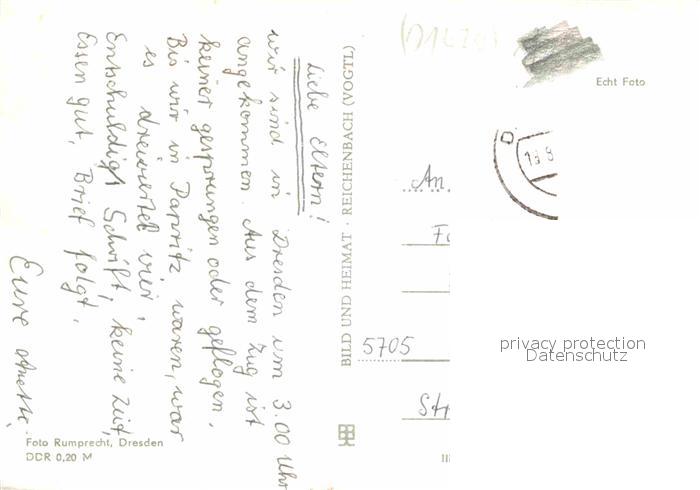 Liebe Eltern!
wir sind in Dresden um 3.00 Uhr
angekommen. Aus dem Zug ist
keiner gesprungen oder geflogen.
Bis wir in Papritz waren, war
es dreiviertel vier.
Entschuldigt Schrift, keine Zeit,
Essen gut, Brief folgt.
Eure
Foto Rumprecht, Dresden
DDR 0,20 M
BILD UND HEIMAT · REICHENBACH (VOGTL)
Echt Foto
An
5705
privacy protection
Datenschutz